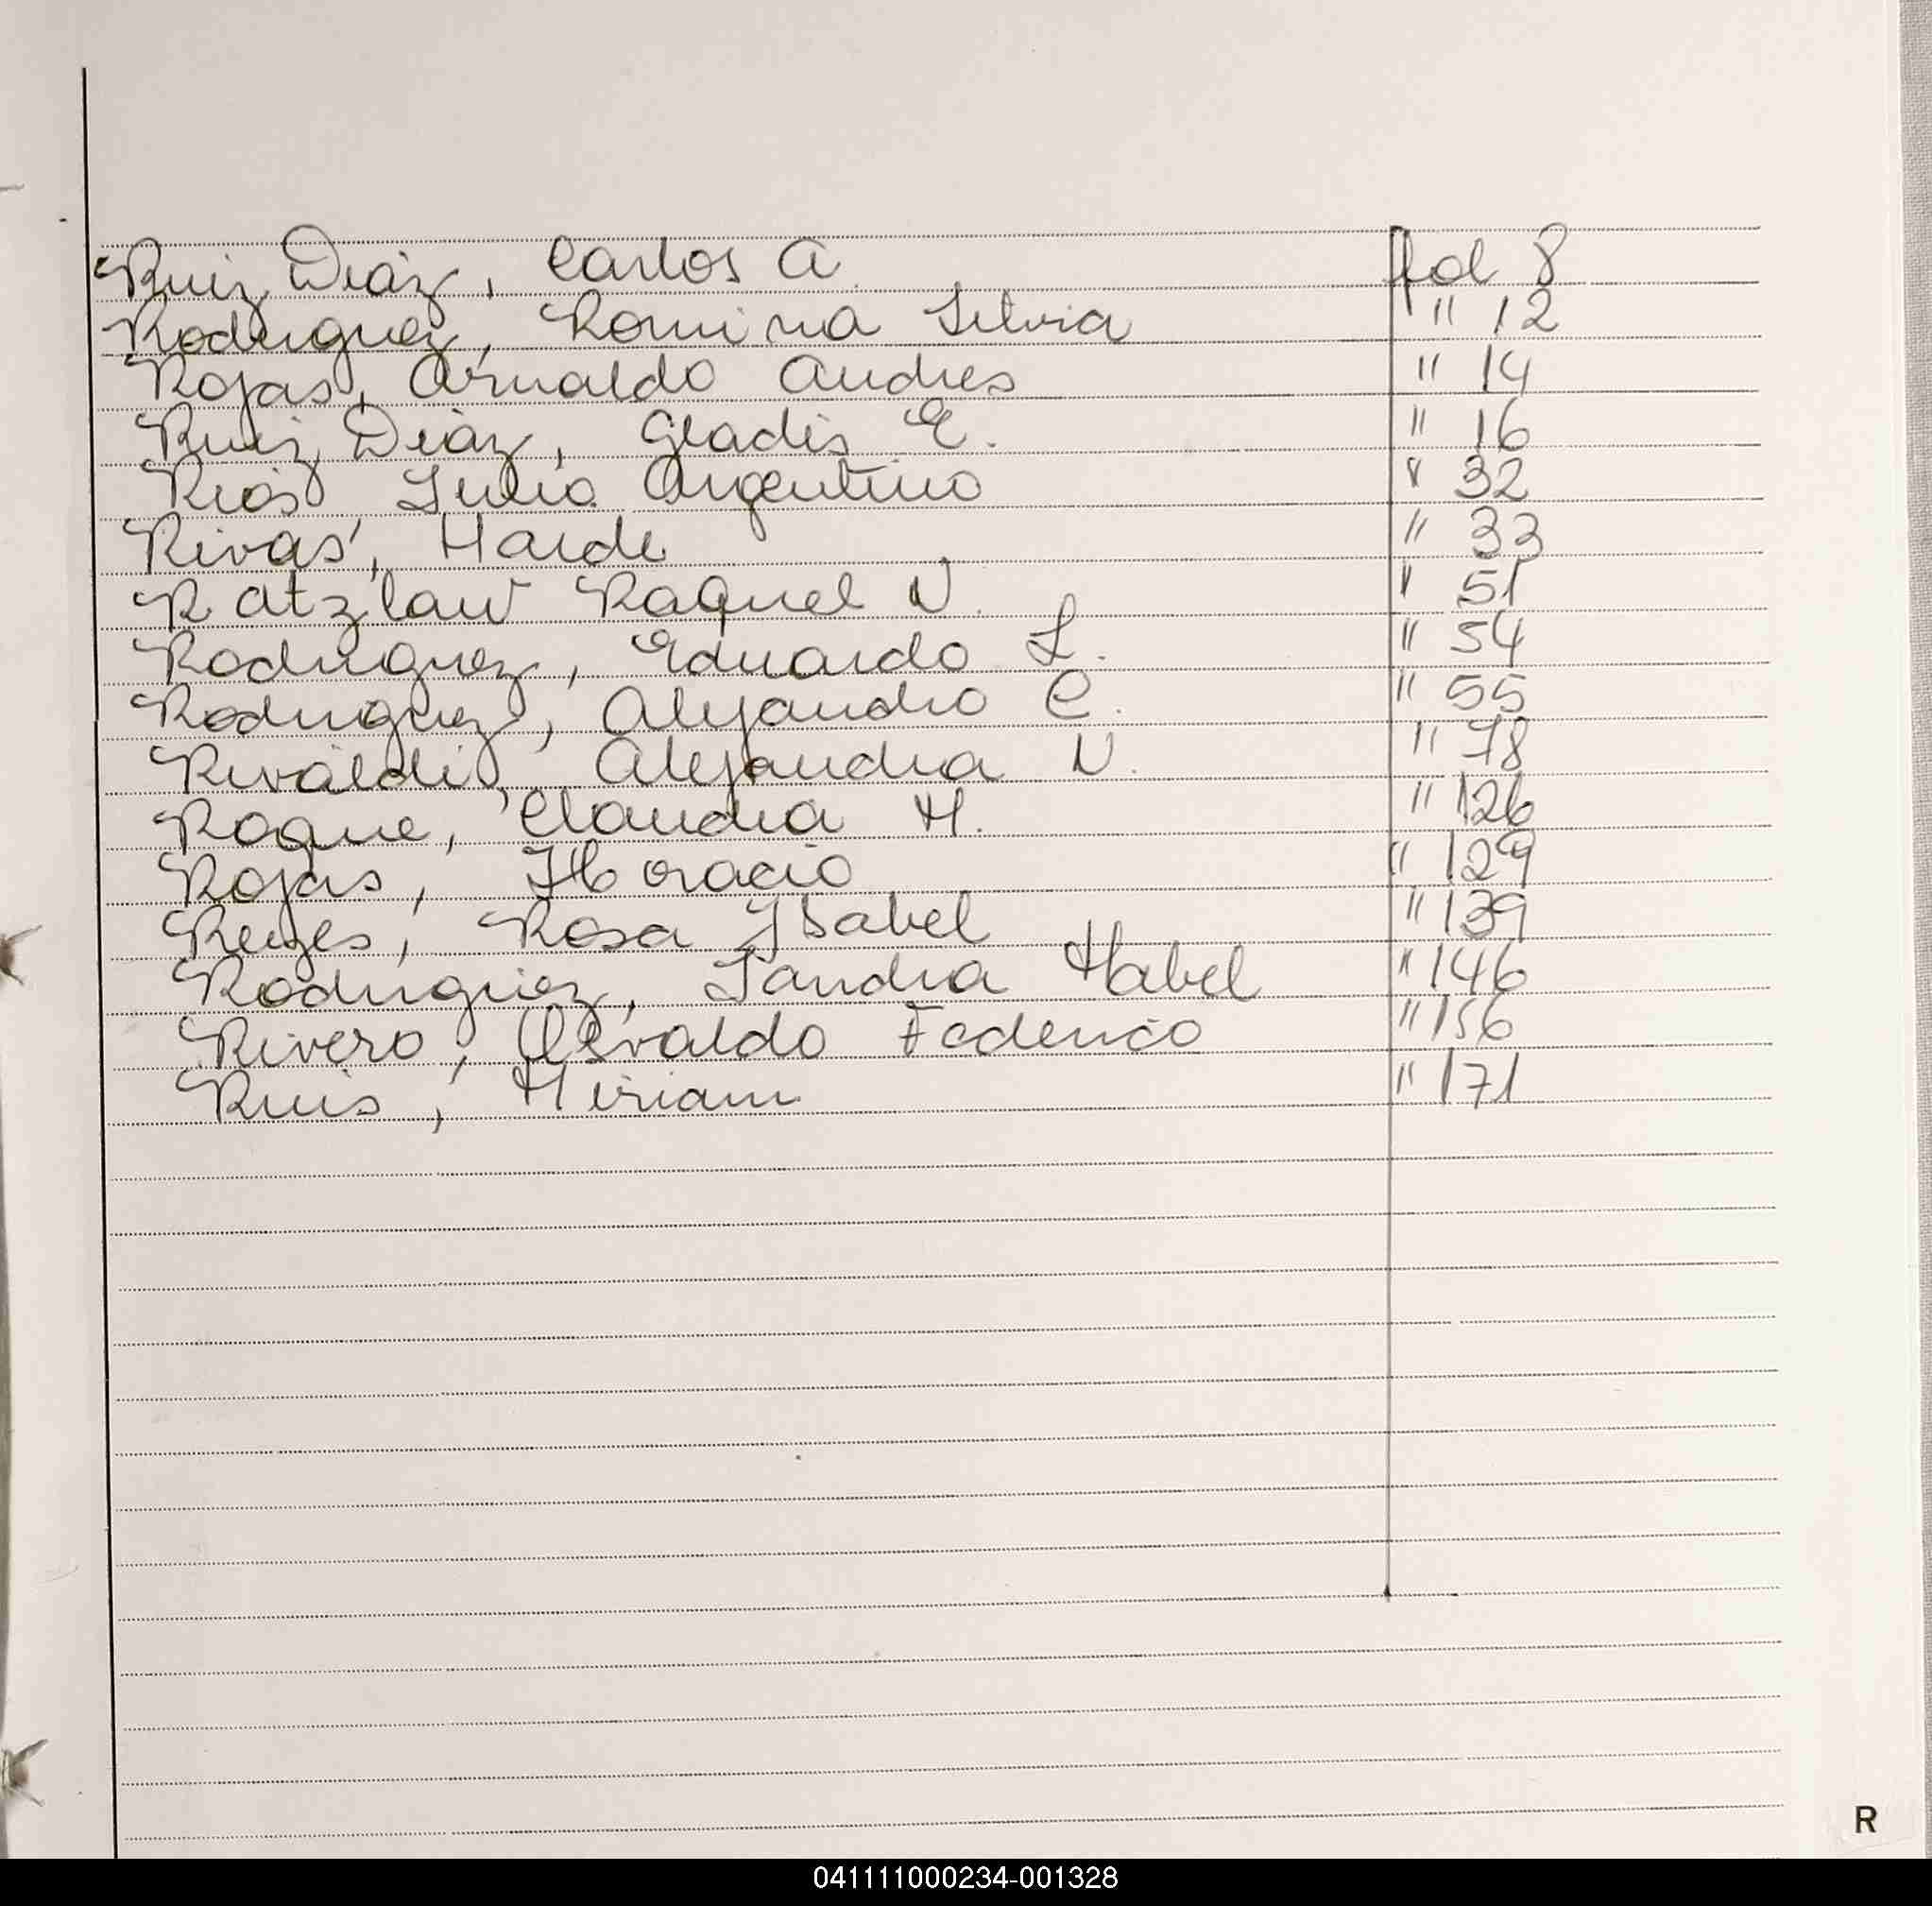 Ruiz Diaz, Carlos A. fol 8
Rodriguez, Romina Silvia " 12
Rojas, Arnaldo Andres " 14
Ruiz Diaz, Gladis E. " 16
Rios, Julio Argentino " 32
Rivas, Haide " 33
Ratzlaw Raquel N. " 51
Rodriguez, Eduardo L. " 54
Rodriguez, Alejandro C. " 55
Rivaldi, Alejandra N. " 78
Roque, Claudia M. " 126
Rojas, Horacio " 129
Reyes, Rosa Ysabel " 139
Rodriguez, Sandra Mabel " 146
Rivero, Osvaldo Federico " 156
Ruis, Miriam " 171
R
041111000234-001328